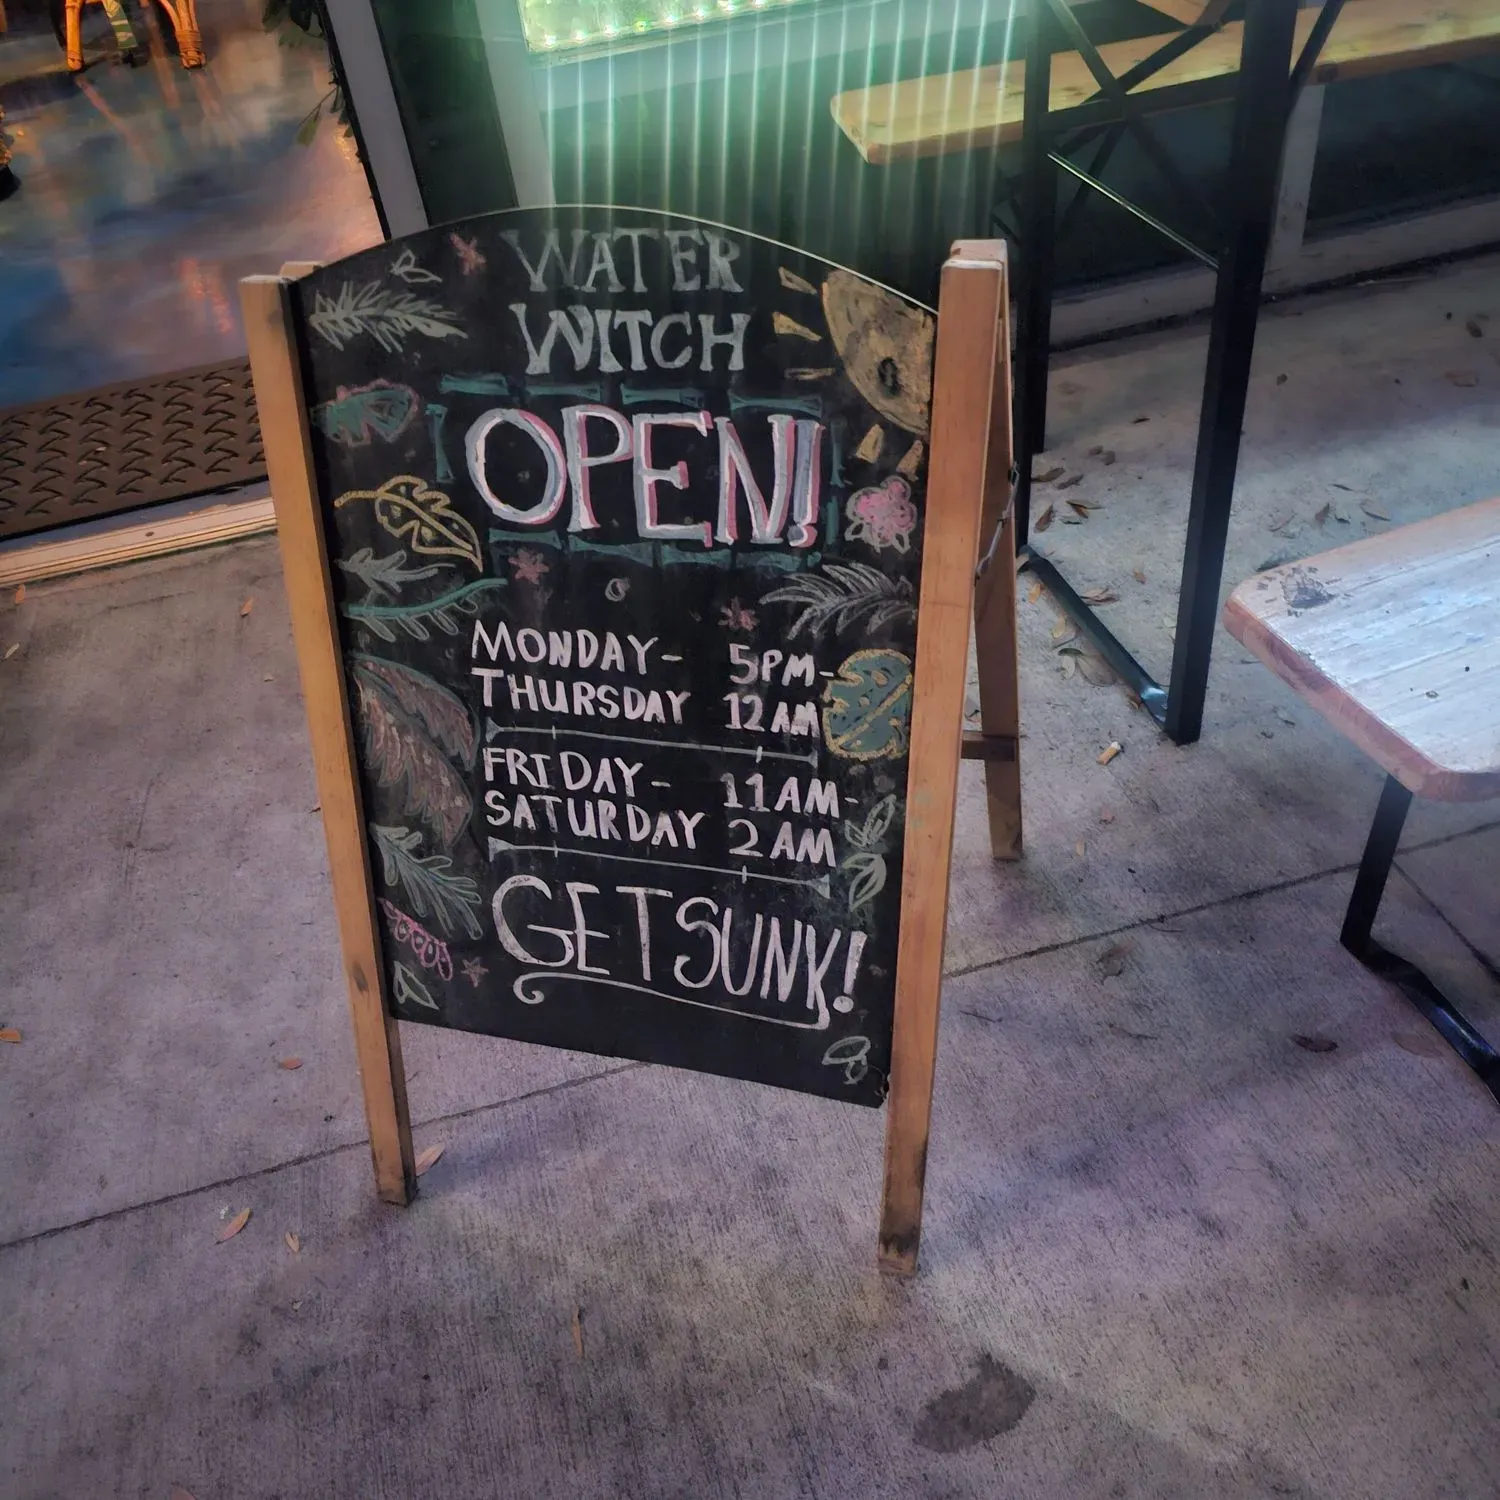 WATER
WITCH
OPEN!
MONDAY- 5PM-
THURSDAY 12AM
FRIDAY- 11AM-
SATURDAY 2AM
GET SUNK!